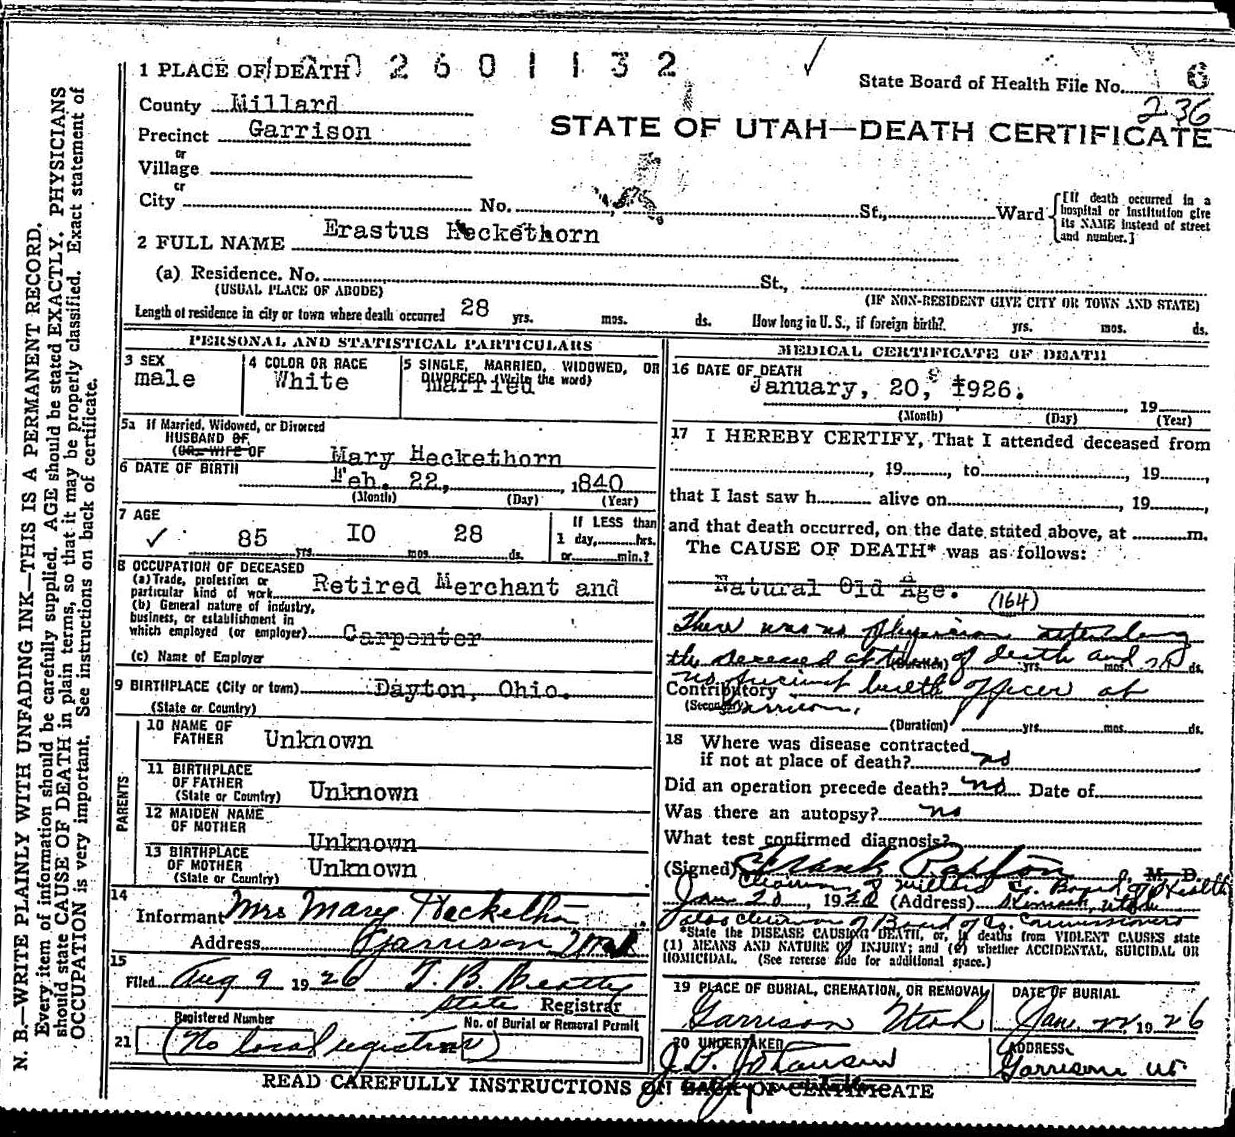 0 2 6 0 1 1 3 2
1 PLACE OF DEATH
State Board of Health File No. 6
236
County Millard
Precinct Garrison
STATE OF UTAH—DEATH CERTIFICATE
or
Village
or
City No. St., Ward
[If death occurred in a
hospital or institution give
its NAME instead of street
and number.]
2 FULL NAME Erastus Heckethorn
(a) Residence. No. St.,
(USUAL PLACE OF ABODE) (IF NON-RESIDENT GIVE CITY OR TOWN AND STATE)
Length of residence in city or town where death occurred 28 yrs. mos. ds. How long in U. S., if foreign birth? yrs. mos. ds.
PERSONAL AND STATISTICAL PARTICULARS
3 SEX
male
4 COLOR OR RACE
White
5 SINGLE, MARRIED, WIDOWED, OR
DIVORCED. (Write the word)
married
5a If Married, Widowed, or Divorced
HUSBAND OF
(OR WIFE OF Mary Heckethorn
6 DATE OF BIRTH Feb. 22, 1840
(Month) (Day) (Year)
7 AGE
85 yrs. 10 mos. 28 ds.
If LESS than
1 day, hrs.
or min.?
8 OCCUPATION OF DECEASED
(a) Trade, profession or
particular kind of work Retired Merchant and
(b) General nature of industry,
business, or establishment in
which employed (or employer) Carpenter
(c) Name of Employer
9 BIRTHPLACE (City or town) Dayton, Ohio.
(State or Country)
PARENTS
10 NAME OF
FATHER Unknown
11 BIRTHPLACE
OF FATHER
(State or Country) Unknown
12 MAIDEN NAME
OF MOTHER
Unknown
13 BIRTHPLACE
OF MOTHER
(State or Country) Unknown
14
Informant Mrs Mary Heckethorn
Address Garrison Utah
15
Filed Aug 9 1926 T. B. Beatty
State Registrar
Registered Number No. of Burial or Removal Permit
21 (No local registrar)
MEDICAL CERTIFICATE OF DEATH
16 DATE OF DEATH
January, 20, 1926.
, 19
(Month) (Day) (Year)
17 I HEREBY CERTIFY, That I attended deceased from
, 19 , to , 19 ,
that I last saw h alive on , 19 ,
and that death occurred, on the date stated above, at m.
The CAUSE OF DEATH* was as follows:
Natural Old Age.
(164)
There was no Physician attending
the deceased at time of death and
(Duration) yrs. mos. ds.
no precinct health officer at
Contributory
(Secondary) Garrison.
(Duration) yrs. mos. ds.
18 Where was disease contracted
if not at place of death? no
Did an operation precede death? no Date of
Was there an autopsy? no
What test confirmed diagnosis?
(Signed) Frank Paxton M. D.
Chairman of Millard Co. Board of Health
Jan 20, 1926 (Address) Kanosh, Utah
also chairman of Board of Co. Commissioners
*State the DISEASE CAUSING DEATH, or, if deaths from VIOLENT CAUSES state
(1) MEANS AND NATURE OF INJURY; and (2) whether ACCIDENTAL, SUICIDAL OR
HOMICIDAL. (See reverse side for additional space.)
19 PLACE OF BURIAL, CREMATION, OR REMOVAL
Garrison Utah
DATE OF BURIAL
Jan. 22 1926
20 UNDERTAKER
ADDRESS
Garrison Ut
READ CAREFULLY INSTRUCTIONS ON BACK OF CERTIFICATE
N. B.—WRITE PLAINLY WITH UNFADING INK—THIS IS A PERMANENT RECORD.
Every item of information should be carefully supplied. AGE should be stated EXACTLY. PHYSICIANS
should state CAUSE OF DEATH in plain terms, so that it may be properly classified. Exact statement of
OCCUPATION is very important. See instructions on back of certificate.